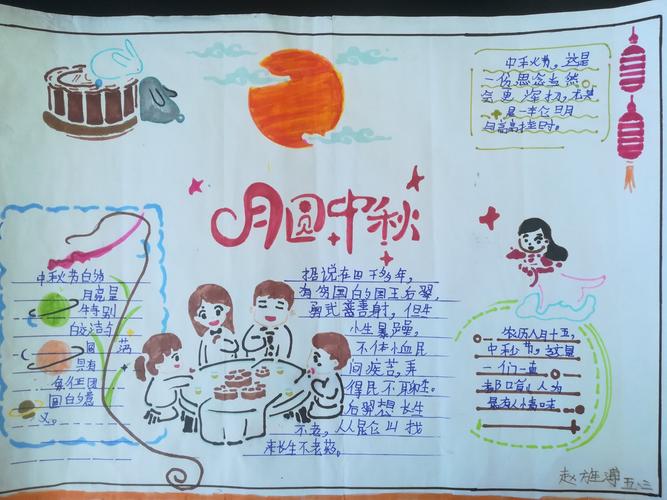 中秋节，这是
一份思念当然
会更深切，尤其
是一轮明月
月高高挂时。
月圆中秋
中秋节的
月亮是
特别
的洁白
圆满
具有
象征团
圆的意
义。
据说在四千多年，
有穷国的国王后羿，
勇武善射，但生
性暴躁，
不体恤民
间疾苦，弄
得民不聊生。
后羿想长生
不老，从昆仑山找
来长生不老药。
农历八月十五，
中秋节，这是
一们一直
都以人为
最有人情味
赵 五、三